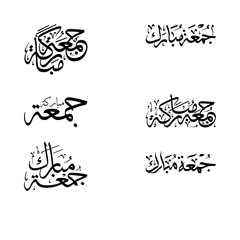 جمعة مباركة
جُمْعَة مُبَارَك
جمعة مباركة
جمعة مباركة
جُمُعَة مُبَارَك
جُمْعَة مُبَارَك